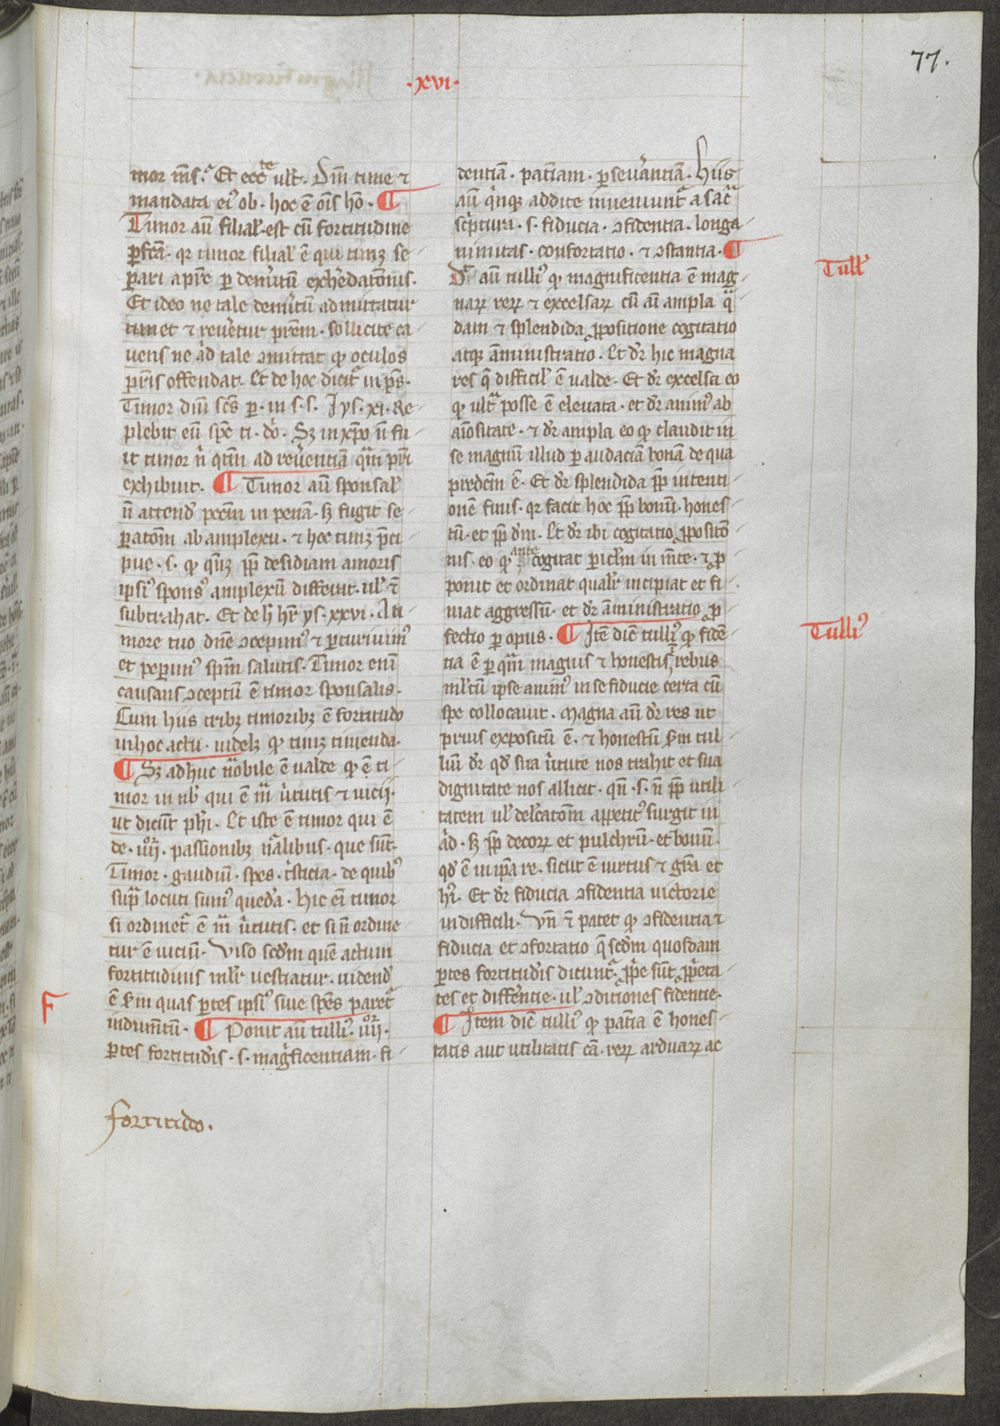 77.
·xvi·
mor īns. Et ecc̄te ult̄. Dm̄ time ⁊
mandata ei᷒ ob. hoc ē om̄s hō. ¶
Timor aū filial̓ est cū fortitudine
ꝑfc̄a. qr timor filial̓ ē qui timꝫ se
pari a pr̄e ꝑ demitū exhēdatōnis.
Et ideo ne tale demitū admittatur
timet ⁊ reūetur pr̄em. sollicite ca
uens ne ad tale ↄmittat qͦ oculos
pr̄is offendat. Et de hoc dicit᷑ in ps̄.
Timor dnī sc̄s ꝑ. in s. s. Iys. xi. Re
plebit eū sp̄c ti. dō. Sꝫ in xp̄o n̄ fu
it timor n̄ qtm̄ ad reūentiā qᷓm pr̄i
exhibuit. ¶ Timor aū sponsal̓
n̄ attend̓ penā. sꝫ fugit se
ꝑatōm ab amplexu. ⁊ hoc timꝫ p̄ci
pue. s. qͦ qnꝫ ꝓp̄ desidiam amoris
ipsi᷒ spons᷒ amplexū differat. ul̓
subtrahat. Et de h̄ hr̄ ys. xxvi. A ti
more tuo dn̄e ↄcepim᷒ ⁊ ꝑturiuim᷒
et peꝑim᷒ spm̄ salutis. Timor enī
causans ↄceptū ē timor sponsalis.
Cum hiis tribꝫ timoribꝫ ē fortitudo
in hoc actu. uidelꝫ qͦ timꝫ timenda.
¶ Sꝫ adhuc nobile ē valde qͦ ē ti
mor in nb̓ qui ē mᷓ ūtutis ⁊ uicij.
ut dicūt ph̄i. Et iste ē timor qui ē
de. iiij. passionibꝫ nᷓalibus. que sūt.
Timor. gaudiū. spes. tristicia. de quib᷒
supᷓ locuti sum᷒ quedā. Hic eī timor
si ordinet᷑ ē mᷓ ūtutis. et si n̄ ordine
tur ē uiciū. Viso sc̄dm quē actum
fortitudinis ml̓r uestiatur. uidend̓
ē s̄m quas ꝑtes ipsi᷒ siue spēs paret᷑
indumtū. ¶ Ponit aū tulli᷒. iiij.
ꝑtes fortitudis. s. magficentiam. fi
F
fortitudo.
dentiā. patiam. ꝑseuantiā. Hiis
aū qinqꝫ addite inueniunt᷑ a sacᷓ
scptura. s. fiducia. ↄfidentia. longa
nimitas. confortatio. ⁊ ↄstantia. ¶
Dr̄ aū tulli᷒ qͦ magnificentia ē mag
narꝝ rerꝝ ⁊ excelsarꝝ cū aī ampla qᷓ
dam ⁊ splendida ꝓpositione cogitatio
atqꝫ aministratio. Et dr̄ hic magna
res q̄ difficil̓ ē valde. Et dr̄ excelsa eo
qͦ ultᷓ posse ē eleuata. et dr̄ anim᷒ ab
aīositate. ⁊ dr̄ ampla eo qͦ claudit in
se magnū illud ꝑ audaciā bonā de qua
predcm̄ ē. Et dr̄ splendida ꝓp̄ intenti
onē finis. qr facit hoc ꝓp̄ bonū. hones
tū. et ꝓp̄ dm̄. Et dr̄ ibi cogitatio ꝓpositō
nis. eo qͦ ante cogitat ꝑiclm̄ in mte. ⁊ ꝓ
ponit et ordinat qualr̄ incipiat et fi
niat aggressū. et dr̄ aministratio ꝓ
fectio ꝑ opus. ¶ Itē dic̄ tulli᷒ qͦ fidē
tia ē ꝑ qᷓm magnis ⁊ honestis rebus
ml̓tū ipse anim᷒ in se fiducie certa cū
spe collocauit. Magna aū dr̄ res ut
prius expositū ē. ⁊ honestū s̄m tul
liū dr̄ qd̓ sua ūtute nos trahit et sua
dignitate nos allicit. qn̄. s. n̄ ꝓp̄ utili
tatem ul̓ delcatōm appetit᷒ surgit in
ad. sꝫ ꝓp̄ decorꝝ et pulchrū. et bonū.
qd̓ ē in ipa re. sicut ē uirtus ⁊ gr̄a et
h᷒i. Et dr̄ fiducia ↄfidentia uictorie
in difficili. Vn̄ ⁊ patet qͦ ↄfidentia ⁊
fiducia et ↄfortatio q̄ sc̄dm quosdam
ꝑtes fortitudis dicunt᷑. ꝓpe sūt ꝓpeta
tes et differntie. ul̓ ↄditiones fidentie.
¶ Item dic̄ tulli᷒ qͦ patia ē hones
tatis aut utilitatis cā. rerꝝ arduarꝝ ac
Tull̓
Tulli᷒